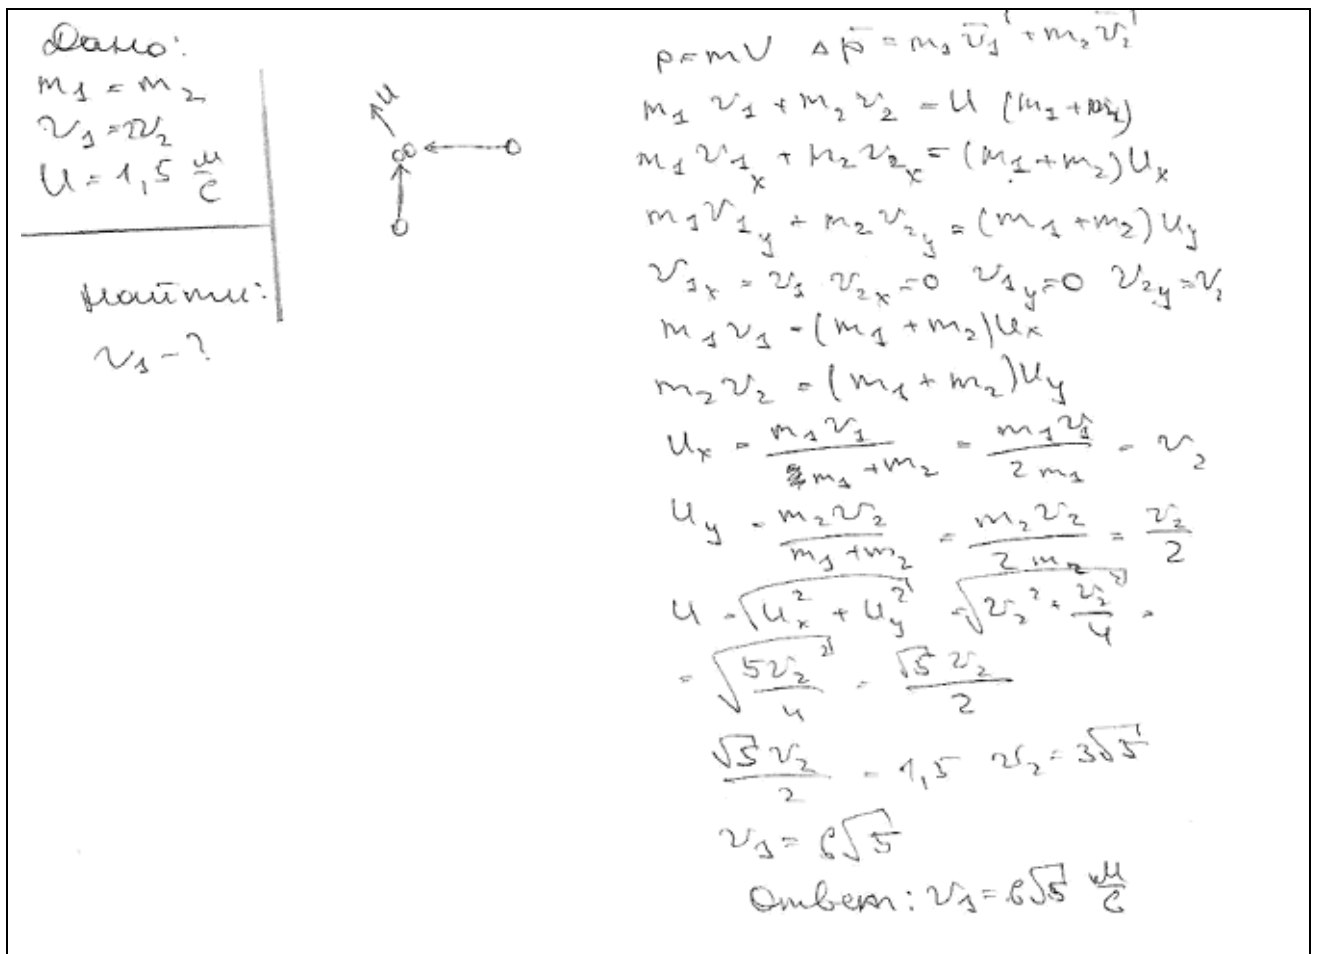 Дано:
m₁ = m₂
v₁ = 2v₂
U = 1,5 м/с
Найти:
v₁ - ?
u
p = mV Δp̄ = m₁v̄₁' + m₂v̄₂'
m₁v₁ + m₂v₂ = U (m₁ + m₂)
m₁v₁ₓ + m₂v₂ₓ = (m₁ + m₂)Uₓ
m₁v₁y + m₂v₂y = (m₁ + m₂)Uy
v₁ₓ = v₁ v₂ₓ = 0 v₁y = 0 v₂y = v₂
m₁v₁ = (m₁ + m₂)Uₓ
m₂v₂ = (m₁ + m₂)Uy
Uₓ = m₁v₁/(m₁ + m₂) = m₁v₁/2m₁ = v₂
Uy = m₂v₂/(m₁ + m₂) = m₂v₂/2m₂ = v₂/2
U = √(Uₓ² + Uy²) = √(v₂² + v₂²/4) =
= √(5v₂²/4) = √5 v₂/2
√5 v₂/2 = 1,5 v₂ = 3√5
v₁ = 6√5
Ответ: v₁ = 6√5 м/с